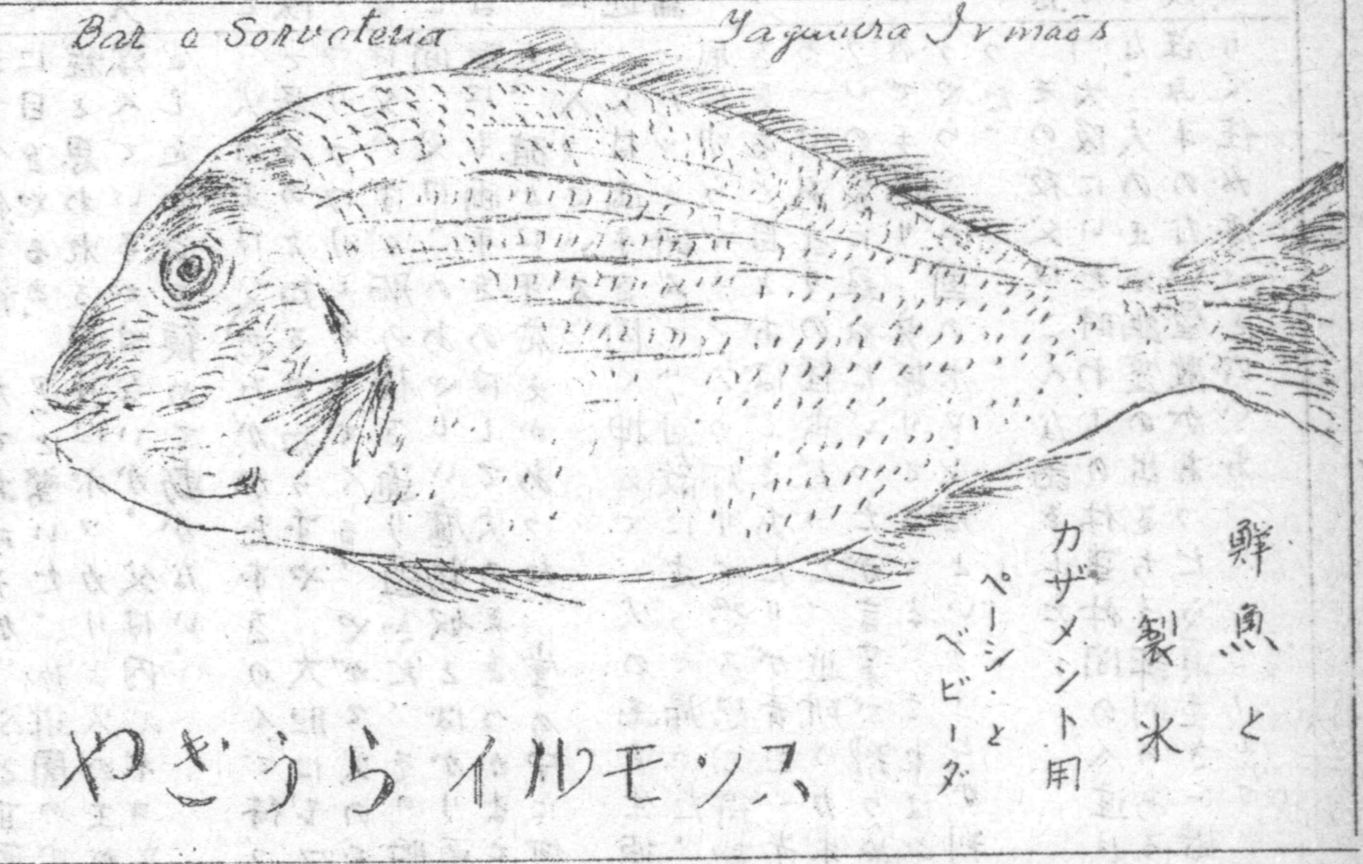 Bar e Sorveteria
Yaguiura Irmaõs
鮮魚と
製氷
カザメント用
ペーシ・と
ベビーダ
やぎうらイルモンス